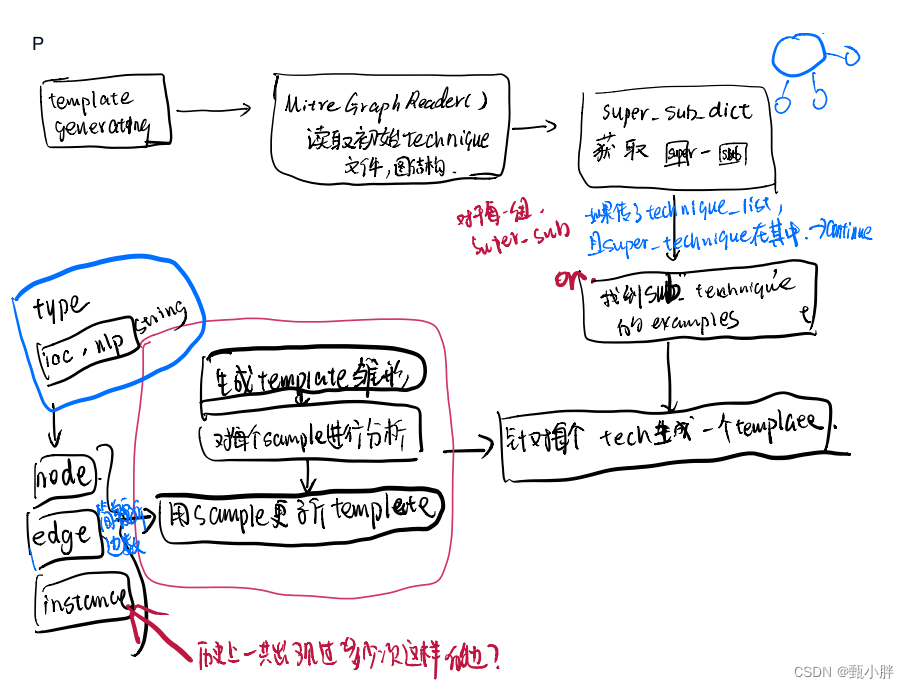 P
template
generating
MitreGraphReader()
读取初始technique
文件,图结构.
super_sub_dict
获取 super - sub
对于每一组.
super_sub
如果传了technique_list,
且super_technique在其中.→continue
or.
找到sub technique
的examples
type
string
ioc, nlp
生成template雏形,
对每个sample进行分析
用sample更新template
针对每个 tech生成一个template.
node
edge
边数
instance
历史上一共出现过多少次这样的边?
CSDN @甄小胖